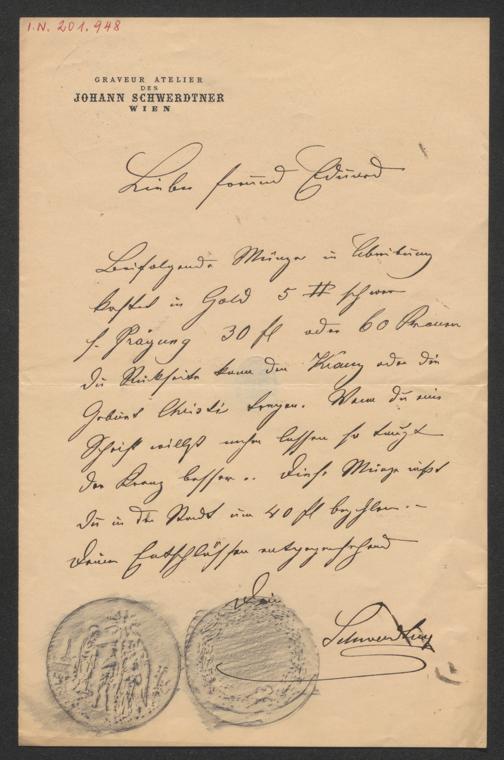 I.N. 201.948
GRAVEUR ATELIER
DES
JOHANN SCHWERDTNER
WIEN
Lieber Freund Eduard
Beifolgende Münze in
kostet in Gold 5 # schwer
s. Prägung 30 fl oder 60 Kronen
die Rückseite kann den Kranz oder die
Geburt Christi tragen. Wenn du eine
Schrift willst machen lassen so taugt
der Kranz besser.. Diese Münze müßt
du in der Stadt um 40 fl bezahlen.-
Deinen Entschlüssen entgegensehend
Dein
Schwerdtner